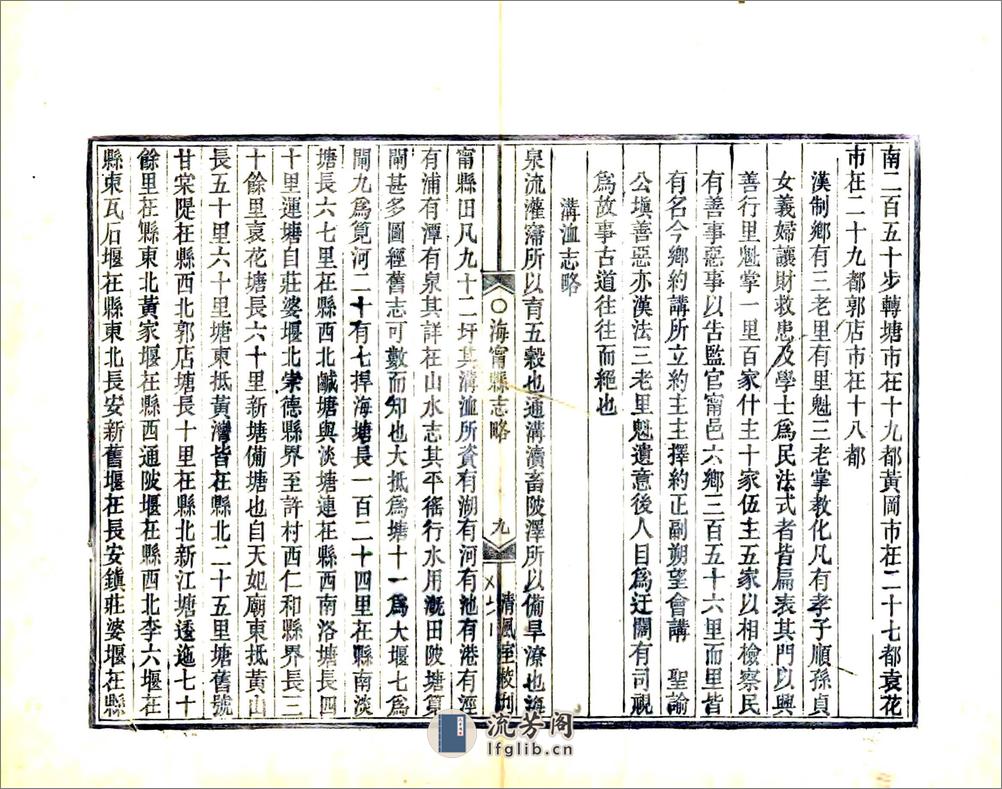 南二百五十步轉塘市在十九都黃岡市在二十七都袁花
市在二十九都郭店市在十八都
漢制鄉有三老里有里魁三老掌教化凡有孝子順孫貞
女義婦讓財救患及學士為民法式者皆扁表其門以興
善行里魁掌一里百家什主十家伍主五家以相檢察民
有善事惡事以告監官甯邑六鄉三百五十六里而里皆
有名今鄉約講所立約主主擇約正副朔望會講　聖諭
公塡善惡亦漢法三老里魁遺意後人目為迂闊有司視
為故事古道往往而絕也
溝洫志略
泉流灌漑所以育五穀也通溝瀆畜陂澤所以備旱潦也海
〇海甯縣志略
九
清風室校刊
甯縣田凡九十二坪其溝洫所資有湖有河有池有港有涇
有浦有潭有泉其詳在山水志其平徭行水用漑田陂塘箅
閘甚多圖經舊志可數而知也大抵為塘十一為大堰七為
閘九為筧河二十有七捍海塘長一百二十四里在縣南淡
塘長六七里在縣西北鹹塘與淡塘連在縣西南洛塘長四
十里運塘自莊婆堰北崇德縣界至許村西仁和縣界長三
十餘里袁花塘長六十里新塘備塘也自天妃廟東抵黃山
長五十里六十里塘東抵黃灣皆在縣北二十五里塘舊號
甘棠隄在縣西北郭店塘長十里在縣北新江塘逶迤七十
餘里在縣東北黃家堰在縣西通陂堰在縣西北李六堰在
縣東瓦石堰在縣東北長安新舊堰在長安鎮莊婆堰在縣
流芳阁
lfglib.cn